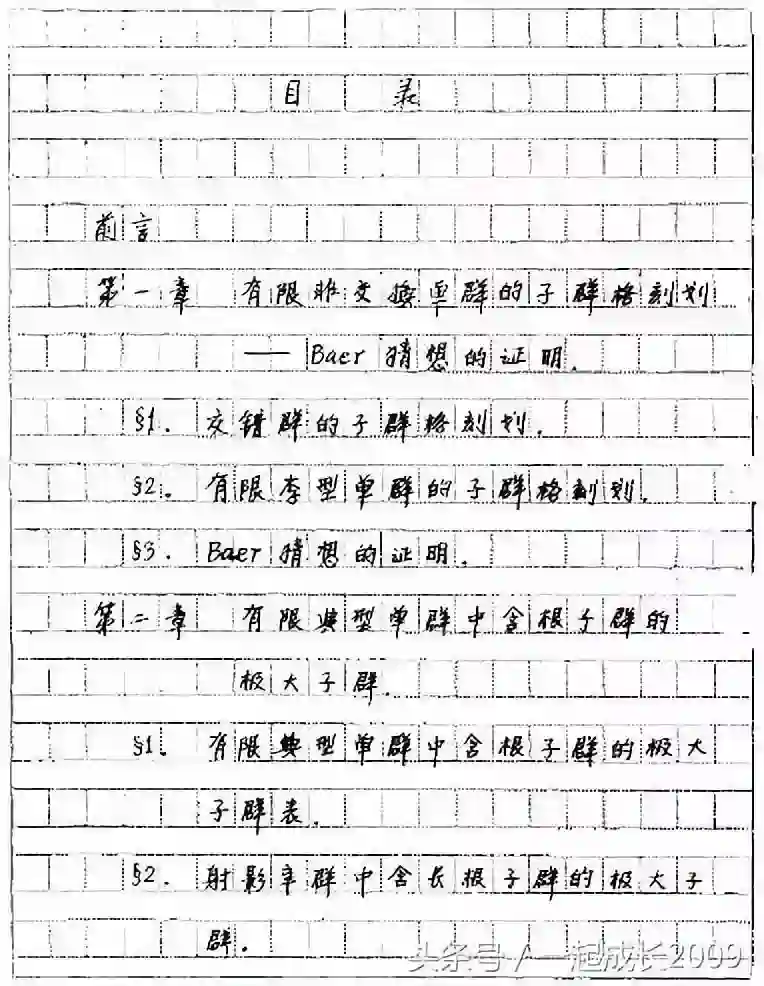 目 录
前言
第一章 有限非交换单群的子群格刻划
—— Baer 猜想的证明.
§1. 交错群的子群格刻划.
§2. 有限李型单群的子群格刻划.
§3. Baer 猜想的证明.
第二章 有限典型单群中含根子群的
极大子群.
§1. 有限典型单群中含根子群的极大
子群表.
§2. 射影辛群中含长根子群的极大子
群.
头条号 / 一起成长2099